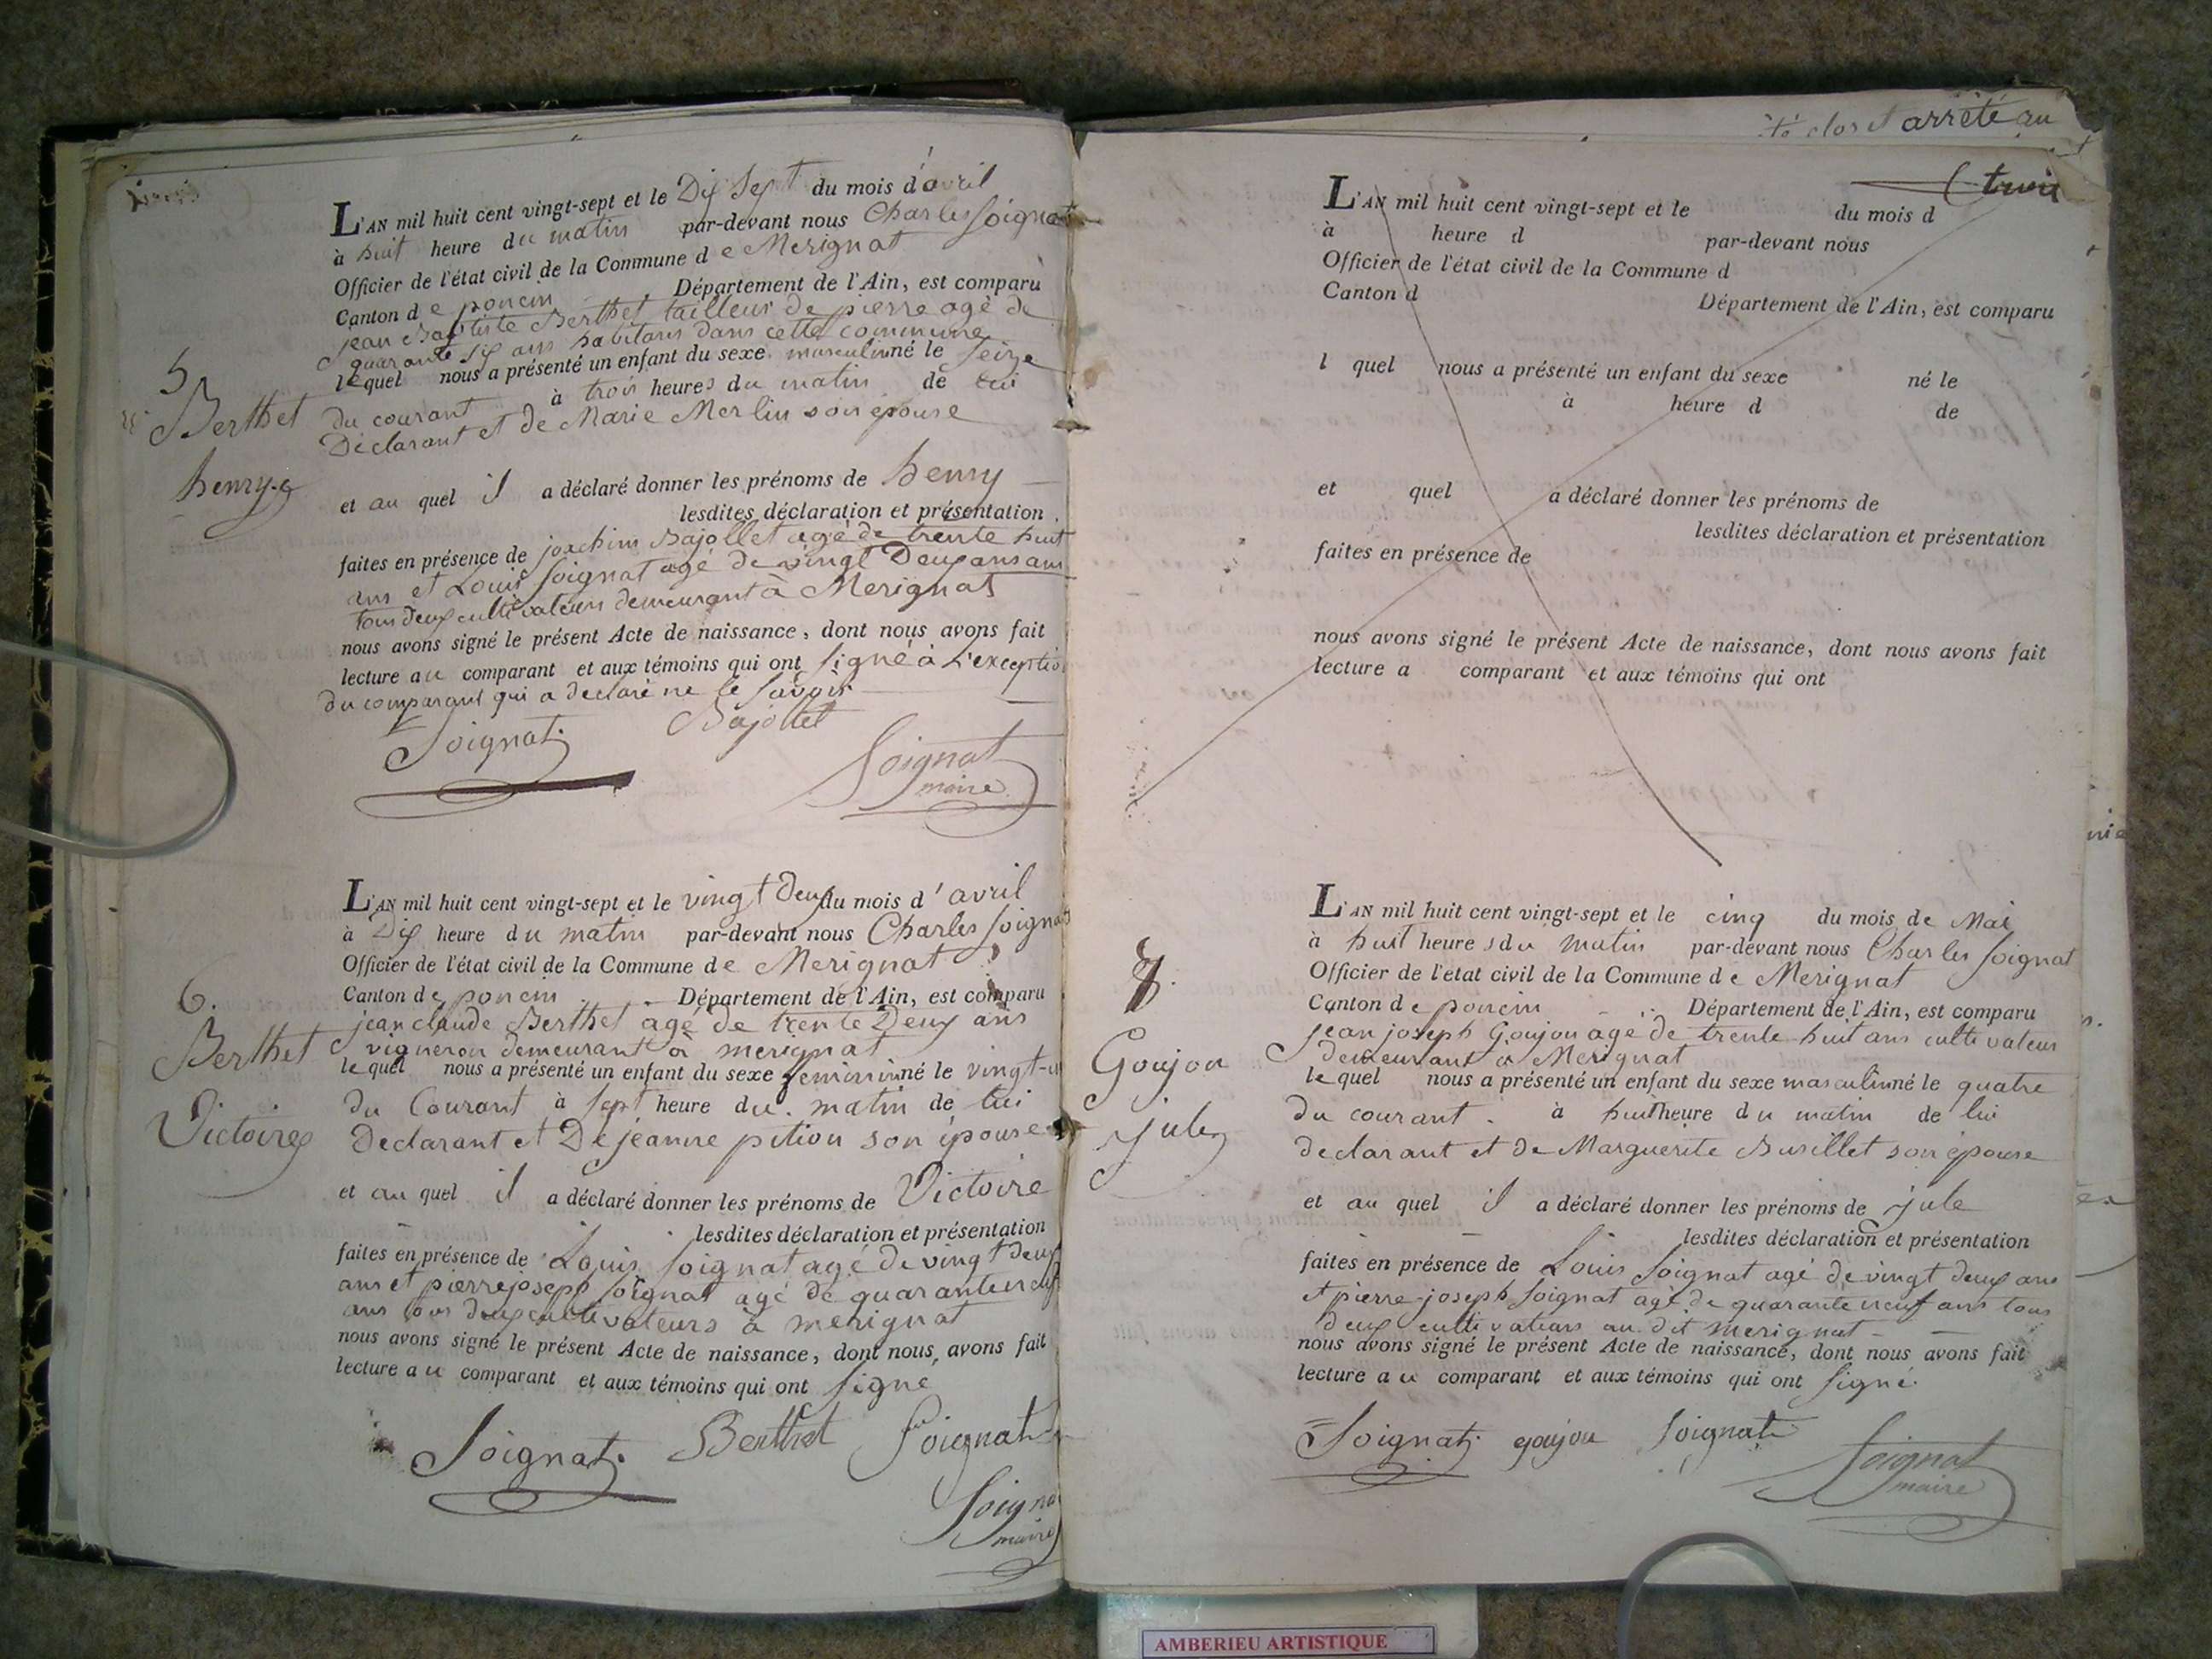 L'AN mil huit cent vingt-sept et le Dix Sept du mois d'avril
à huit heure du matin par-devant nous Charles Soignat
Officier de l'état civil de la Commune de Merignat
Canton de poncin Département de l'Ain, est comparu
jean Baptiste Berthet tailleur de pierre agé de
quarante six ans habitans dans cette commune
lequel nous a présenté un enfant du sexe masculin né le seize
du courant à trois heures du matin de lui
Déclarant et de Marie Merlin son épouse
5
Berthet
henry
et au quel il a déclaré donner les prénoms de henry
lesdites déclaration et présentation
faites en présence de joachim Bajollet agé de trente huit
ans et Louis Soignat agé de vingt Deux ans
tous deux cultivateurs demeurant à Merignat
nous avons signé le présent Acte de naissance, dont nous avons fait
lecture au comparant et aux témoins qui ont signé à L'exception
du comparant qui a declaré ne le savoir
Soignat Bajollet
Soignat
maire
L'AN mil huit cent vingt-sept et le vingt deux du mois d'avril
à Dix heure du matin par-devant nous Charles Soignat
Officier de l'état civil de la Commune de Merignat
Canton de poncin Département de l'Ain, est comparu
jean claude Berthet agé de trente Deux ans
vigneron demeurant à merignat
lequel nous a présenté un enfant du sexe feminin né le vingt-un
du Courant à sept heure du matin de lui
Declarant et De jeanne pition son épouse
6.
Berthet
Victoire
et au quel il a déclaré donner les prénoms de Victoire
lesdites déclaration et présentation
faites en présence de Louis Soignat agé de vingt deux
ans et pierre joseph Soignat agé de quarante neuf
ans tous deux cultivateurs à merignat
nous avons signé le présent Acte de naissance, dont nous avons fait
lecture au comparant et aux témoins qui ont signé
Soignat Berthet Soignat
Soignat
maire
clos et arrêté au
trois
L'AN mil huit cent vingt-sept et le du mois d
à heure d par-devant nous
Officier de l'état civil de la Commune d
Canton d Département de l'Ain, est comparu
l quel nous a présenté un enfant du sexe né le
à heure d de
et quel a déclaré donner les prénoms de
lesdites déclaration et présentation
faites en présence de
nous avons signé le présent Acte de naissance, dont nous avons fait
lecture a comparant et aux témoins qui ont
L'AN mil huit cent vingt-sept et le cinq du mois de Mai
à huit heures du matin par-devant nous Charles Soignat
Officier de l'etat civil de la Commune de Merignat
Canton de poncin Département de l'Ain, est comparu
jean joseph Goujon agé de trente huit ans cultivateur
demeurant à Merignat
lequel nous a présenté un enfant du sexe masculin né le quatre
du courant à huit heure du matin de lui
declarant et de Marguerite Burillet son épouse
7.
Goujon
jule
et au quel il a déclaré donner les prénoms de jule
lesdites déclaration et présentation
faites en présence de Louis Soignat agé de vingt deux ans
et pierre-joseph Soignat agé de quarante neuf ans tous
deux cultivateurs au dit merignat
nous avons signé le présent Acte de naissance, dont nous avons fait
lecture au comparant et aux témoins qui ont signé.
Soignat goujon Soignat
Soignat
maire
AMBERIEU ARTISTIQUE